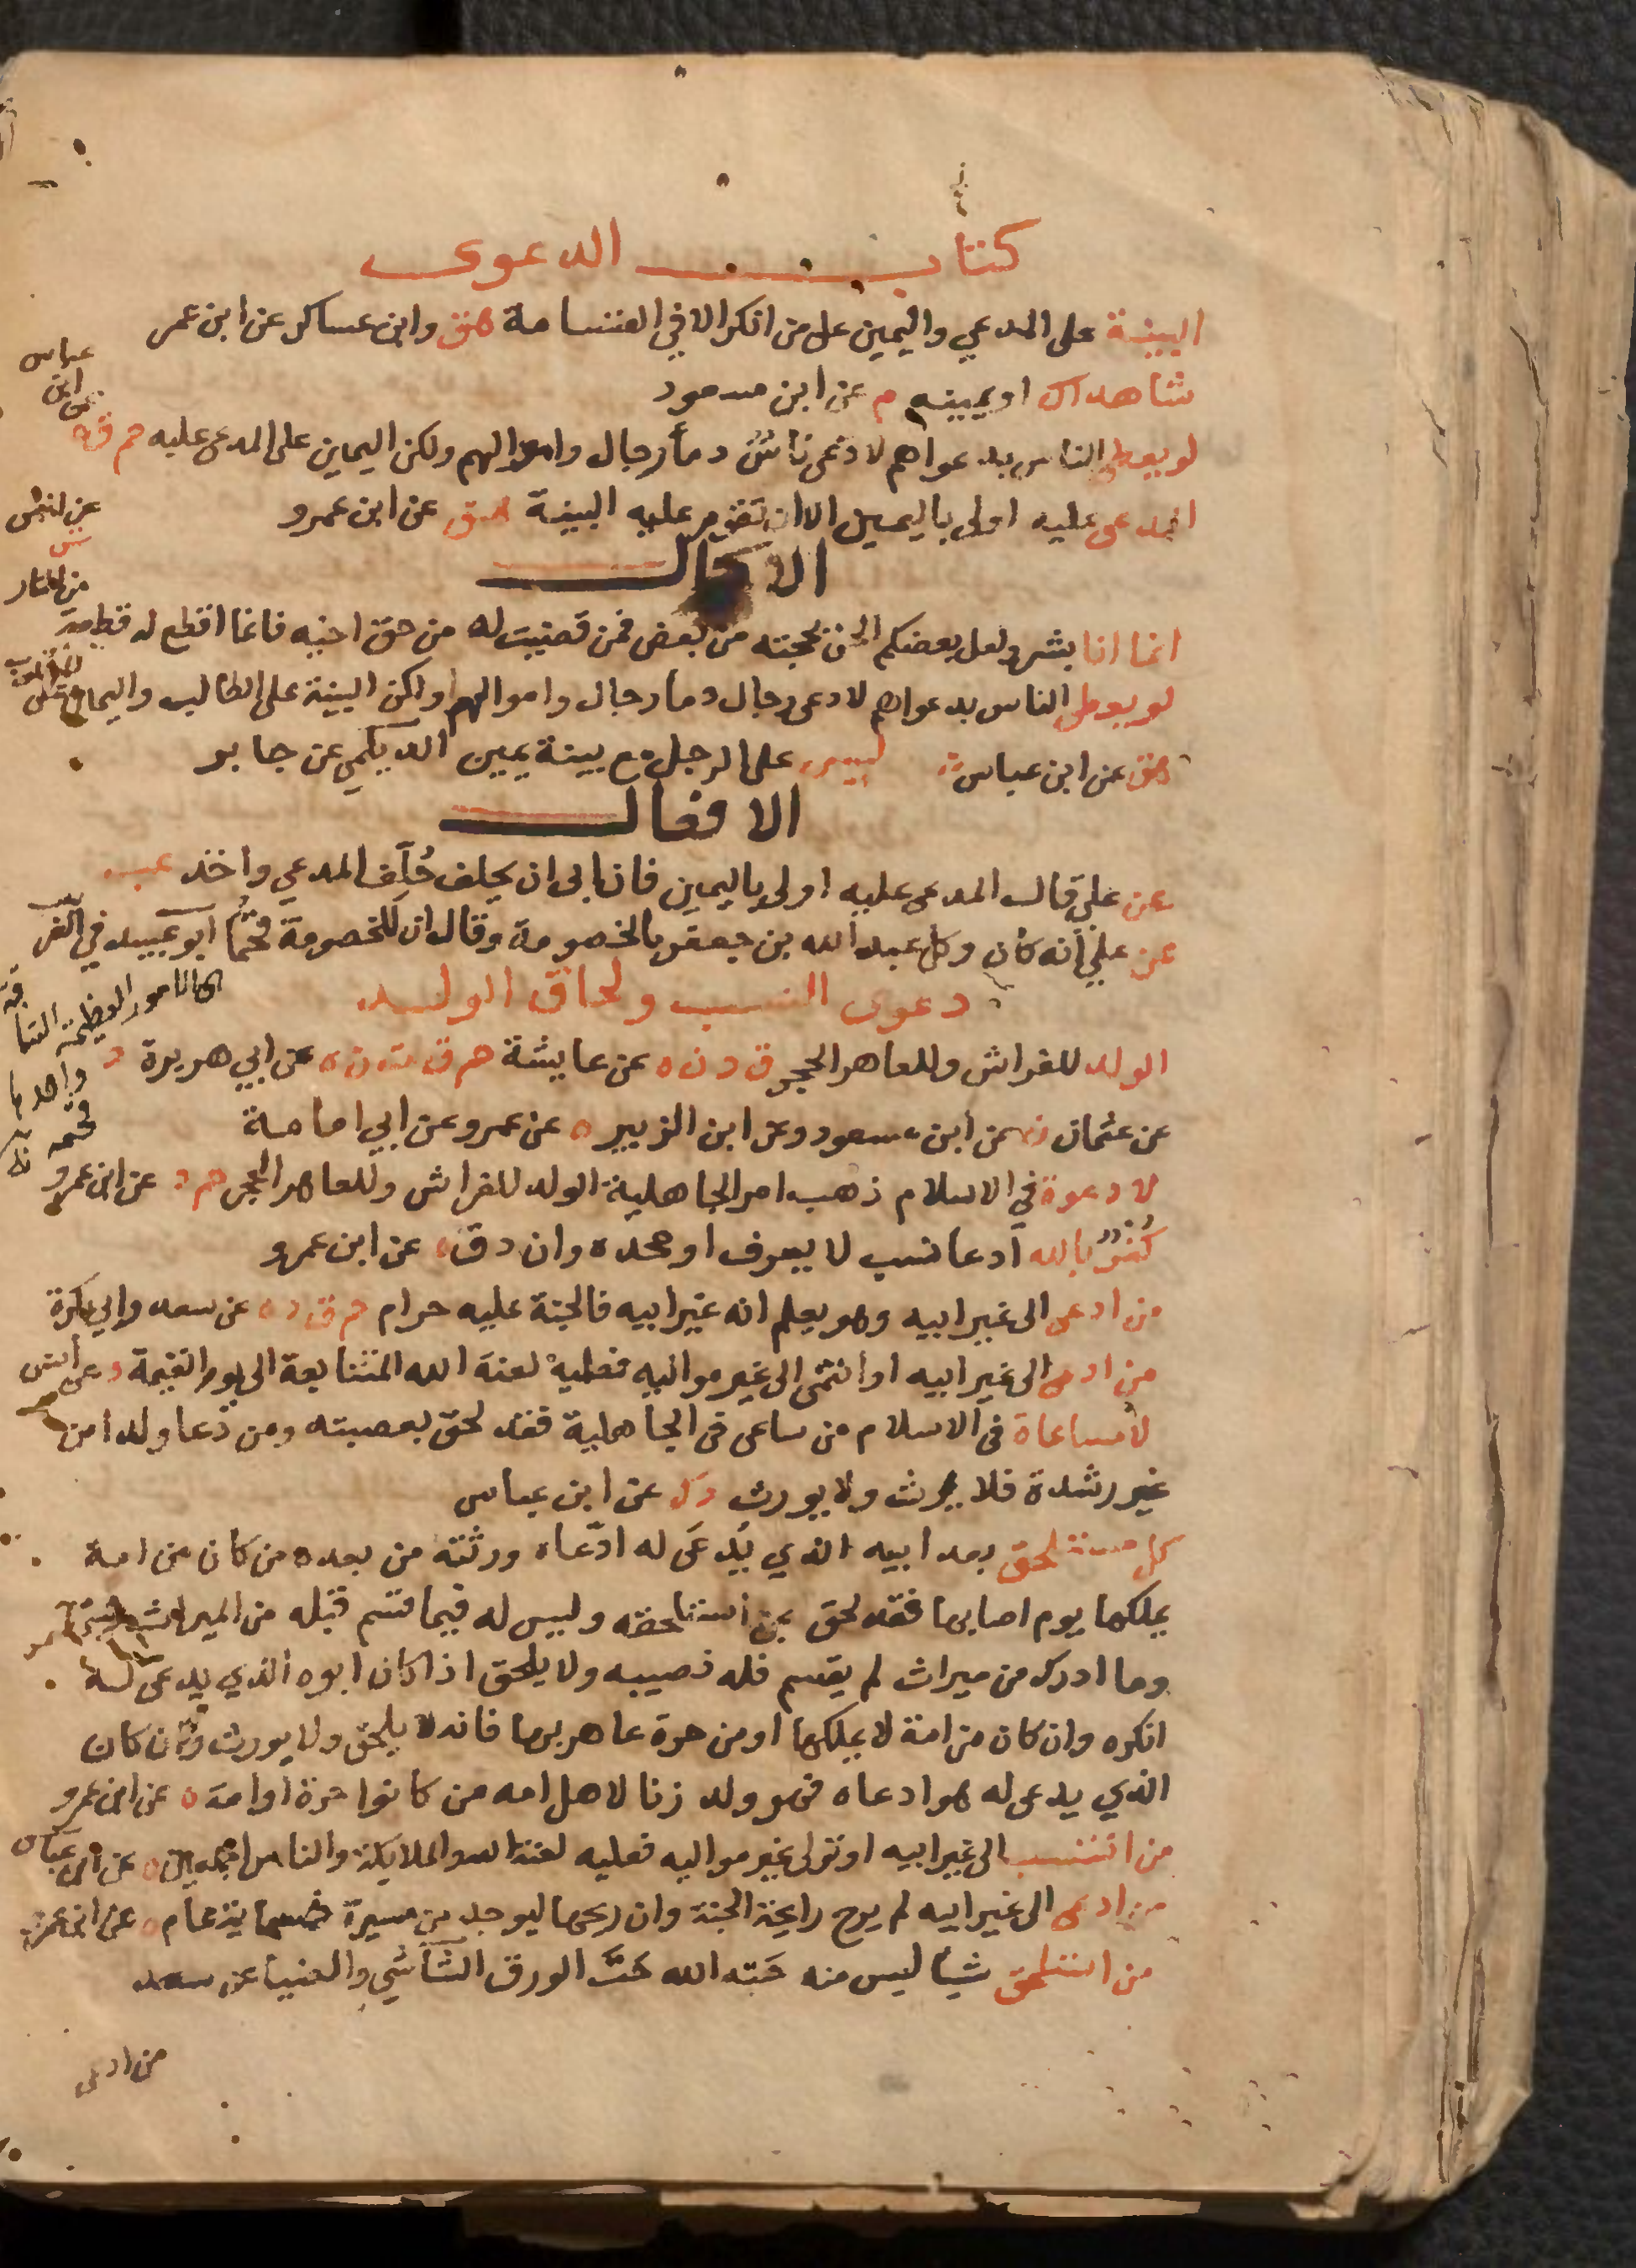 كتاب الدعوى
البينة على المدعي واليمين على من انكر الا في القسامة هق وابن عساكر عن ابن عمر
شاهداك او يمينه م عن ابن مسعود
لو يعطى الناس بدعواهم لادعى ناسٌ دمأ رجال واموالهم ولكن اليمين على المدعى عليه حم ق ه
عن ابن عباس
المدعى عليه اولى باليمين الا ان تقوم عليه البينة هق عن ابن عمرو
الاكمال
انما انا بشر ولعل بعضكم الحن بحجته من بعض فمن قضيت له من حق اخيه فانما اقطع له قطعة
من النار
عن انس
لو يعطى الناس بدعواهم لادعى رجال دما رجال واموالهم ولكن البينة على الطالب واليمين على المطلوب
هق عن ابن عباس ليس على الرجل مع بينة يمين الديلمي عن جابر
الافعال
عن علي قال المدعى عليه اولى باليمين فان ابى ان يحلف حُلِّف المدعي واخذ عب
عن علي انه كان وكل عبد الله بن جعفر بالخصومة وقال ان للخصومة قحمًا ابو عبيد في الغريب
اي الامور العظيمة الشاقة
واحدها
قحمه
دعوى النسب ولحاق الولد
الولد للفراش وللعاهر الحجر ق د ن ه عن عايشة حم ق ت ن ه عن ابي هريرة د
عن عثمان ن عن ابن مسعود وعن ابن الزبير ه عن عمر وعن ابي امامة
لا دعوة في الاسلام ذهب امر الجاهلية الولد للفراش وللعاهر الحجر حم د عن ابن عمرو
كُفْرٌ بالله ادعا نسب لا يعرف او جحده وان دق ه عن ابن عمرو
من ادعى الى غير ابيه وهو يعلم انه غير ابيه فالجنة عليه حرام حم ق د ه عن سعد وابي بكرة
من ادعى الى غير ابيه او انتمى الى غير مواليه فعليه لعنة الله المتتابعة الى يوم القيمة د عن انس
لا مساعاة في الاسلام من ساعى في الجاهلية فقد لحق بعصبته ومن دعا ولدا من
غير رشدة فلا يرث ولا يورث د ك عن ابن عباس
كل مستلحق بعد ابيه الذي يُدعَى له ادّعاه ورثته من بعده من كان من امة
يملكها يوم اصابها فقد لحق بمن استلحقه وليس له فيما قسم قبله من الميراث شيئ
وما ادرك من ميراث لم يقسم فله نصيبه ولا يلحق اذا كان ابوه الذي يدعى له
انكره وان كان من امة لا يملكها او من حرة عاهر بها فانه لا يلحق ولا يورث وان كان
الذي يدعى له هو ادعاه فهو ولد زنا لاهل امه من كانوا حرة او امة ه عن ابن عمرو
من انتسب الى غير ابيه او تولى غير مواليه فعليه لعنة الله والملايكة والناس اجمعين ه عن ابن عباس
من ادعى الى غير ابيه لم يرح رايحة الجنة وان ريحها ليوجد من مسيرة خمسماية عام ه عن ابن عمرو
من استلحق شيأ ليس منه حَته الله حَتَّ الورق الشاشي والضيا عن سعد
من ادعى